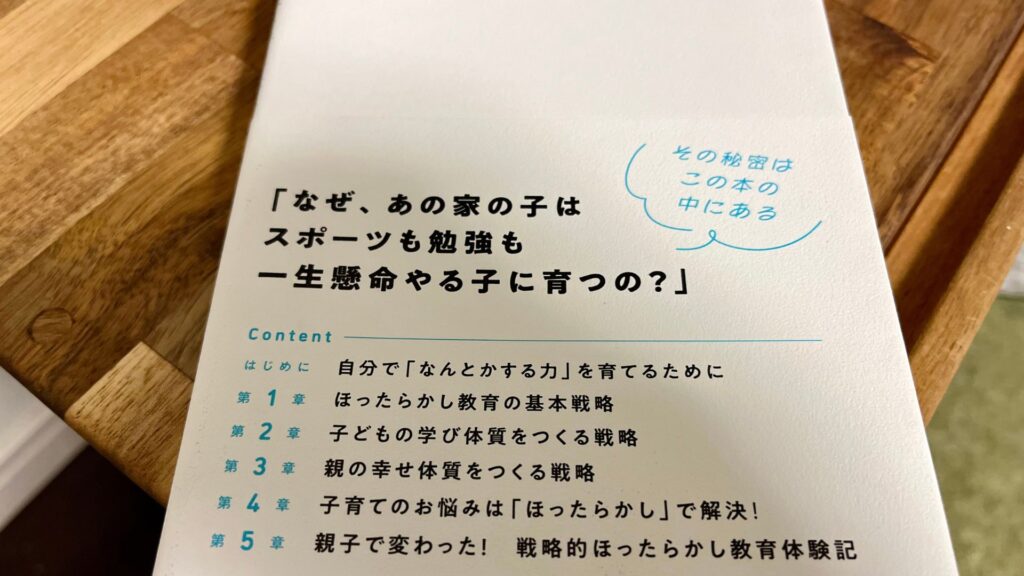 その秘密は
この本の
中にある
「なぜ、あの家の子は
スポーツも勉強も
一生懸命やる子に育つの？」
Content
はじめに 自分で「なんとかする力」を育てるために
第1章 ほったらかし教育の基本戦略
第2章 子どもの学び体質をつくる戦略
第3章 親の幸せ体質をつくる戦略
第4章 子育てのお悩みは「ほったらかし」で解決！
第5章 親子で変わった！ 戦略的ほったらかし教育体験記